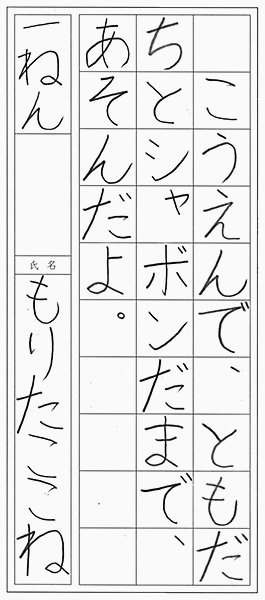 こうえんで、ともだ
ちとシャボンだまで、
あそんだよ。
一ねん
氏名
もりたここね